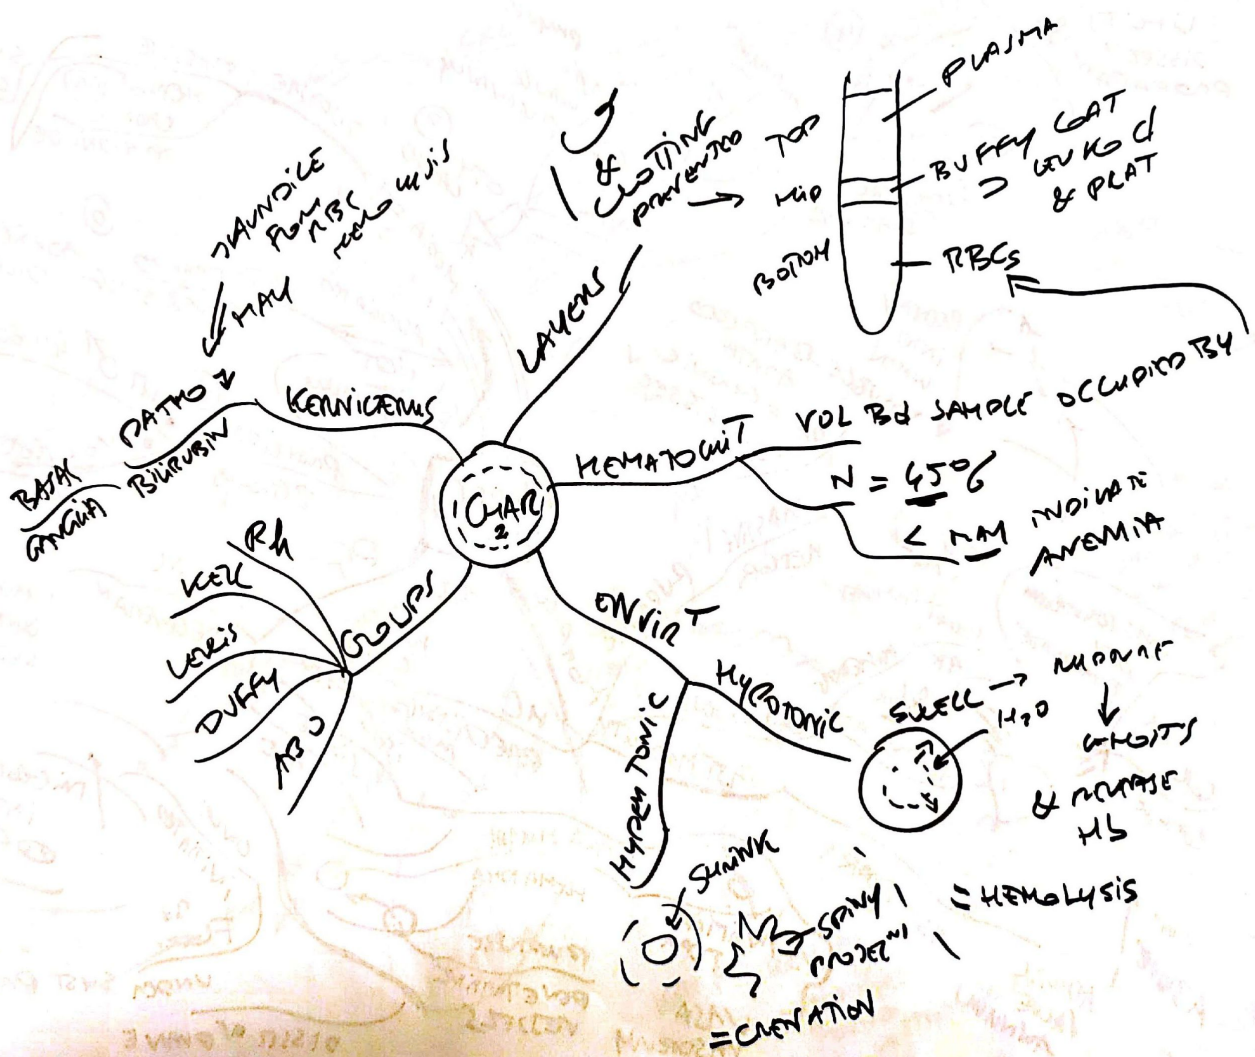 CHAR
2
LAYERS
&
CLOTTING
PREVENTED
TOP
MID
BOTTOM
PLASMA
BUFFY COAT
= LEUKO C/
& PLAT
RBCs
HEMATOCRIT
VOL Bd SAMPLE OCCUPIED BY
N = 45%
< MAY INDICATE
ANEMIA
ENVIR T
HYPOTONIC
SWELL → RUPTURE
H2O
GHOSTS
& RELEASE
Hb
= HEMOLYSIS
HYPERTONIC
SHRINK
SPINY
PROJECN
= CRENATION
GROUPS
Rh
KELL
LEWIS
DUFFY
ABO
KERNICTERUS
JAUNDICE
FROM
RBC
HEMOLYSIS
MAY
PATHO
BILIRUBIN
BASAL
GANGLIA